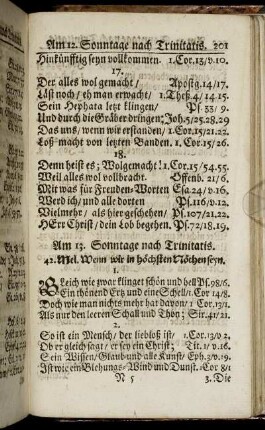 Am 12. Sonntage nach Trinitatis. 201
Hinkünfftig seyn vollkommen. 1.Cor.13/v.10.
17.
Der alles wol gemacht/ Apostg.14/17.
Läst noch/ eh man erwacht/ 1.Theß.4/14.15.
Sein Hephata letzt klingen/ Ps.33/9.
Und durch die Gräber dringen; Joh.5/25.28.29
Das uns/ wenn wir erstanden/ 1.Cor.15/21.22.
Loß macht von letzten Banden. 1.Cor.15/26.
18.
Denn heist es; Wolgemacht! 1.Cor.15/54.55.
Weil alles wol vollbracht. Offenb.21/6.
Mit was für Freuden-Worten Esa.24/v.16.
Werd ich/ und alle dorten Ps.116/v.12.
Vielmehr/ als hier geschehen/ Ps.107/21.22.
HErr Christ/ dein Lob begehen. Ps.72/18.19.
Am 13. Sonntage nach Trinitatis.
42. Mel. Wenn wir in höchsten Nöthen seyn.
1.
Gleich wie zwar klinget schön und hell Ps.98/6.
Ein thönend Ertz und eine Schell/ 1.Cor 14/8.
Doch wie man nichts mehr hat davon/ 1 Cor.13/1.
Als nur den leeren Schall und Thon; Sir.41/21.
2.
So ist ein Mensch/ der liebloß ist/ 1.Cor.13/v 2.
Ob er gleich sagt/ er sey ein Christ; Tit.1/v.16.
Sein Wissen/ Glaub und alle Kunst/ Eph.3/v.19.
Ist wie ein Blehungs-Wind und Dunst. 1.Cor 8/1
N 5 3. Die